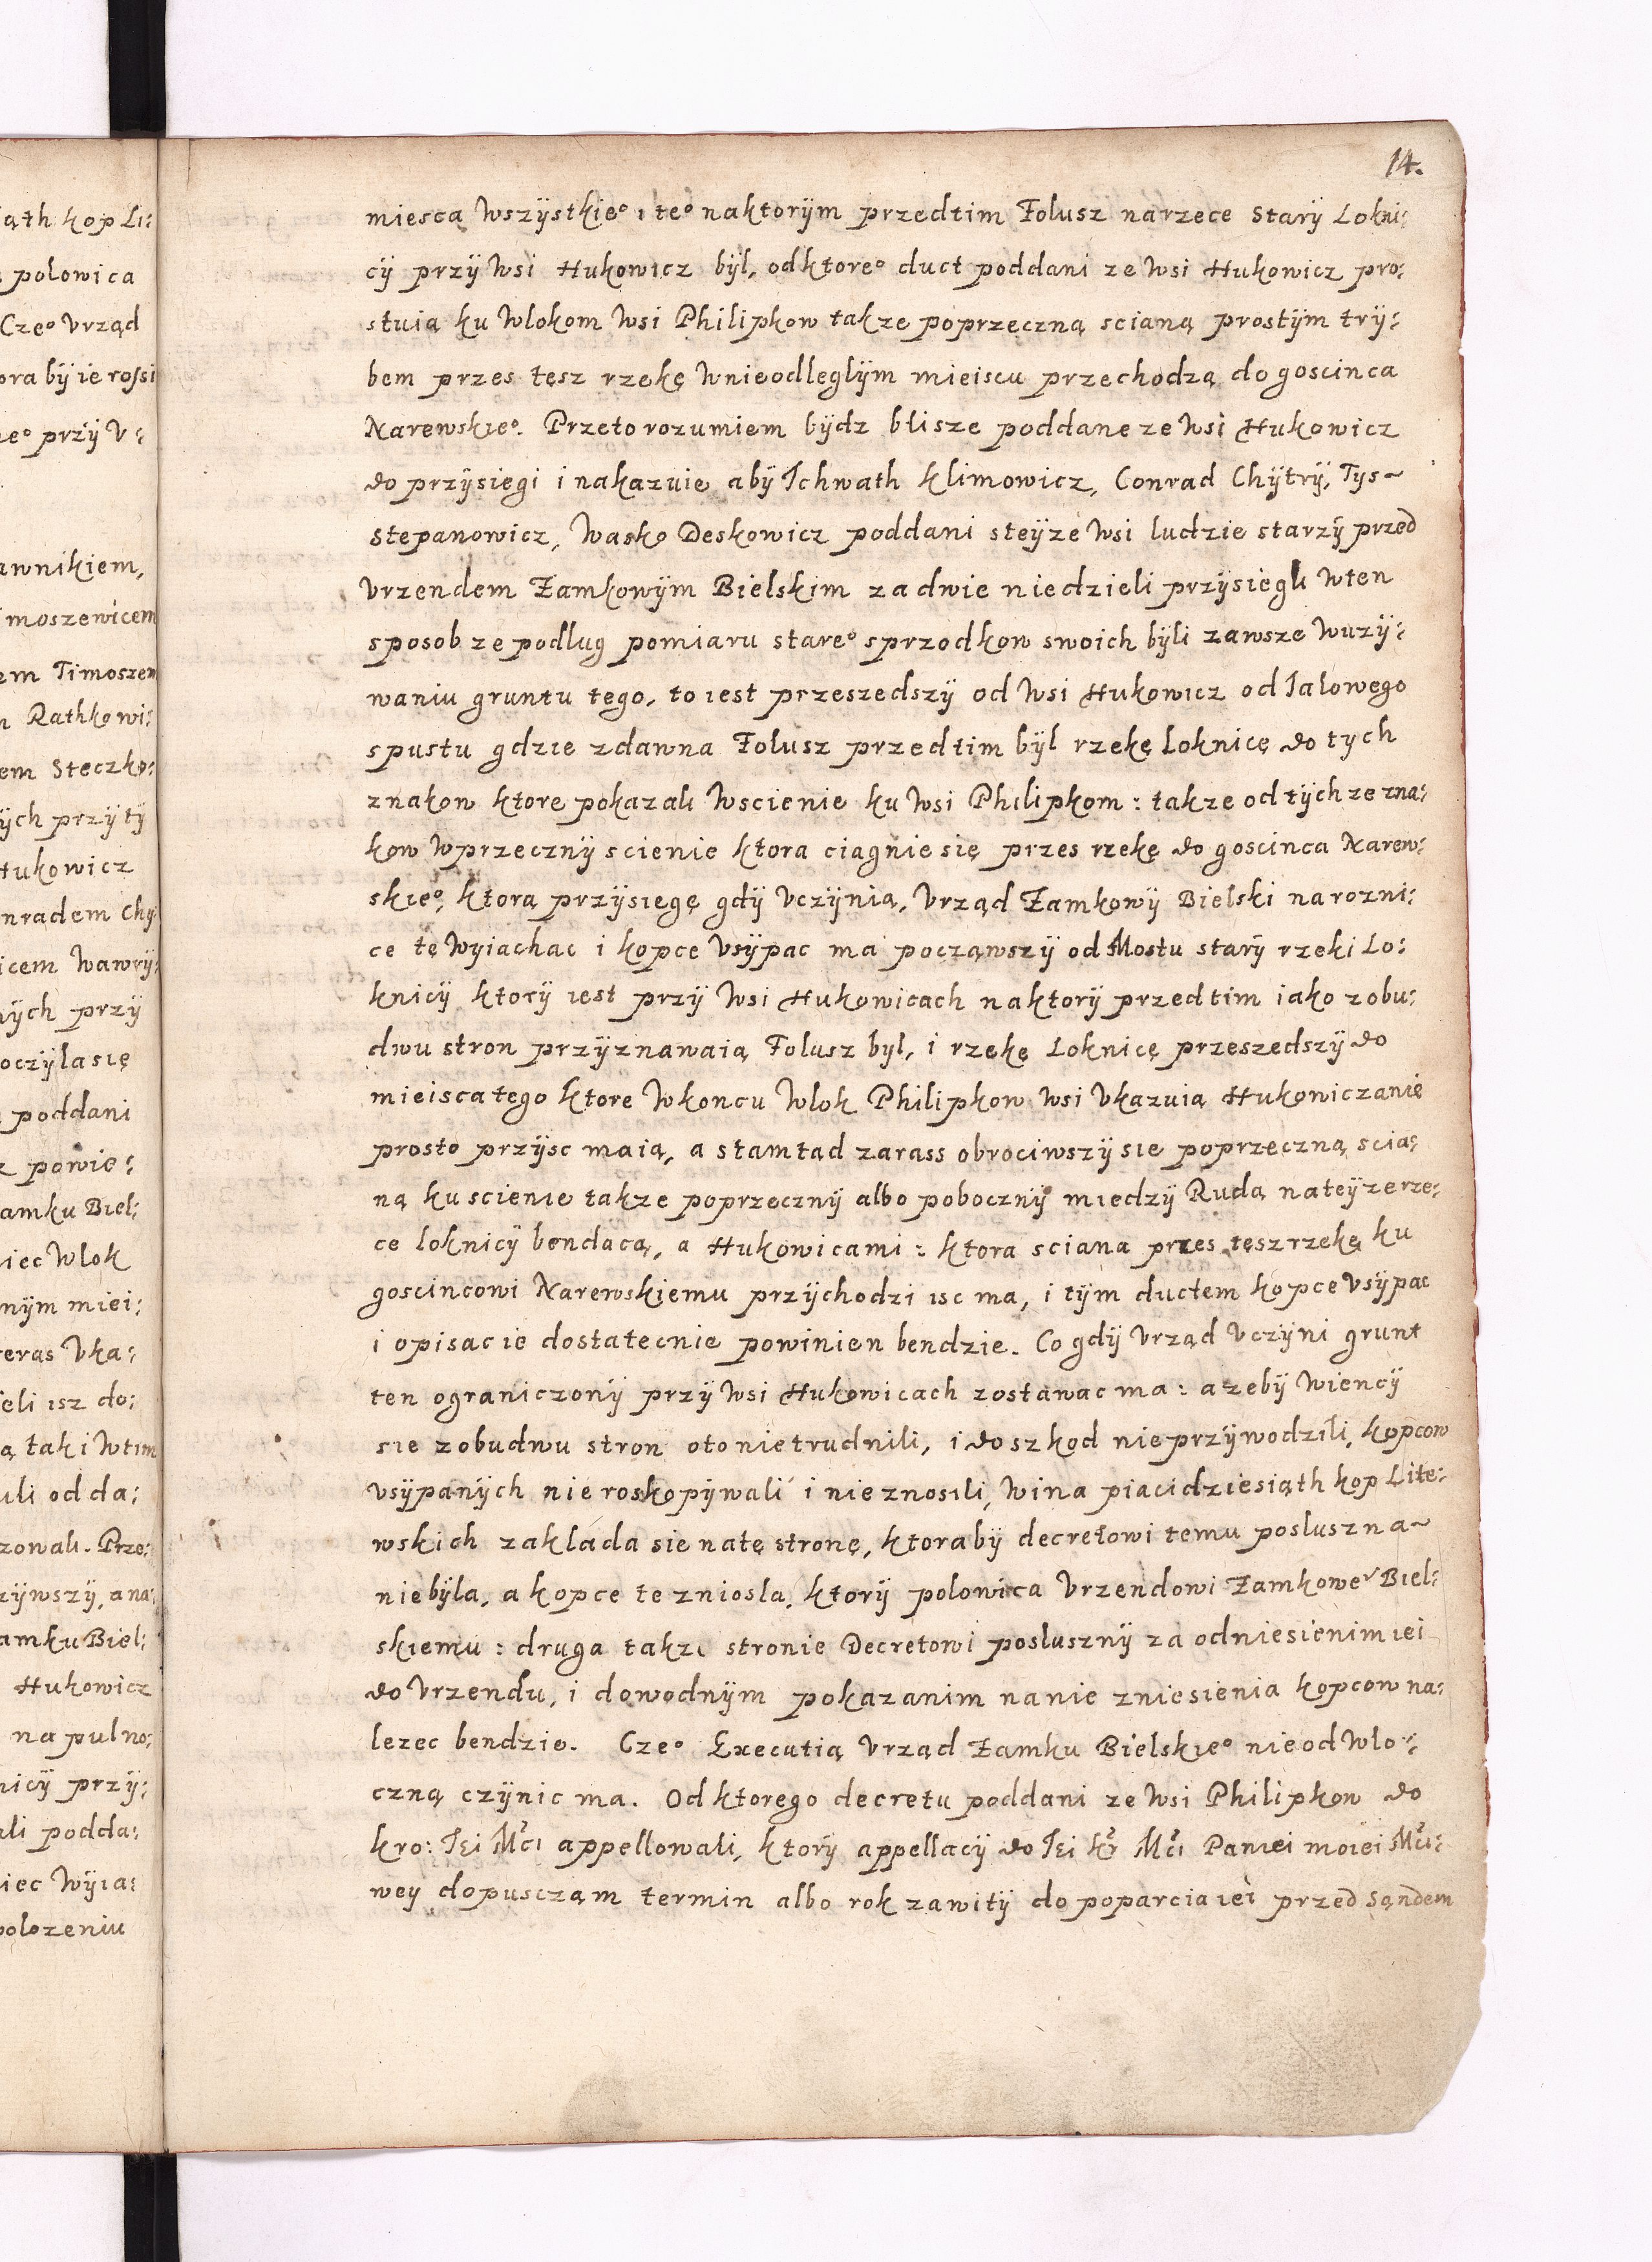 14.
miesca Wszÿstkie° i te° naktorÿm przedtim Folusz narzece Starÿ Lokni:
cÿ przÿ Wsi Hukowicz bÿl, odktore° duct poddani ze Wsi Hukowicz pro:
stuią ku Wlokom Wsi Philipkow takze poprzeczną scianą prostÿm trÿ:
bem przes tęsz rzekę Wnieodleglÿm mieiscu przechodzą do goscinca
Narewskie°. Przeto rozumiem bÿdz blisze poddane ze Wsi Hukowicz
do przÿsiegi i nakazuie abÿ Ichwath Klimowicz, Conrad Chÿtrÿ, Tys~
Stepanowicz, Wasko Deskowicz poddani steÿze Wsi ludzie starzÿ przed
Vrzendem Zamkowÿm Bielskim za dwie niedzieli przÿsiegli Wten
sposob ze podlug pomiaru stare° sprzodkow swoich bÿli zawsze Wuzÿ:
waniu gruntu tego, to iest przeszedszÿ od Wsi Hukowicz od Ialowego
spustu gdzie zdawna Folusz przedtim bÿl rzekę Loknicę do tych
znakow ktore pokazali Wscienie ku Wsi Philipkom: takze od tÿch ze zna:
kow Wprzecznÿ scienie ktora ciagnie się przes rzekę do goscinca Narew:
skie°, ktorą przÿsięgę gdÿ Vczÿnią, Vrząd Zamkowÿ Bielski na rozni:
ce tę Wyiachac i kopce Vsÿpac ma począwszÿ od Mostu starÿ rzeki Lo:
knicÿ ktorÿ iest przÿ Wsi Hukowicach naktorÿ przedtim iako zobu:
dwu stron przÿznawaią Folusz byl, i rzękę Loknicę przeszedszÿ do
mieisca tego ktore Wkoncu Wlok Philipkow Wsi Vkazuią Hukowiczanie
prosto przÿsc maią, a stamtad zarass obrociwszÿ sie poprzeczną scia:
ną ku scienie takze poprzecznÿ albo pobocznÿ miedzÿ Rudą nateÿze rze:
ce loknicÿ bendacą, a Hukowicami: ktora sciana przes tęsz rzekę ku
goscincowi Narewskiemu przÿchodzi isc ma, i tÿm ductem kopce Vsÿpac
i opisac ie dostatecnie powinien bendzie. Co gdÿ Vrząd Vczÿni grunt
ten ograniczonÿ przÿ Wsi Hukowicach zostawac ma: a zebÿ Wiencÿ
sie zobudwu stron oto nietrudnili, i do szkod nie przÿwodzili, kopcow
vsÿpanÿch nie roskopÿwali i nie znosili, Wina piacidziesiąth kop Lite:
wskich zaklada sie natę stronę, ktorabÿ decretowi temu poslusznа~
niebÿla, a kopce te zniosla, ktorÿ polowica Vrzendowi Zamkowe͞ Biel:
skiemu: druga takzi stronie Decretowi poslusznÿ za odniesienim iei
do Vrzendu, i dowodnÿm pokazanim nanie zniesienia kopcow na:
lezec bendzie. Cze° Executią Vrząd Zamku Bielskie° nieodWlo:
czną czÿnic ma. Odktorego decretu poddani ze Wsi Philipkow do
kro: Iei Mci appellowali, ktorÿ appellacÿ do Iei Kr Mci Paniei moiei Mci:
wey dopusczam termin albo rok zawitÿ do poparcia iei przed sąndem